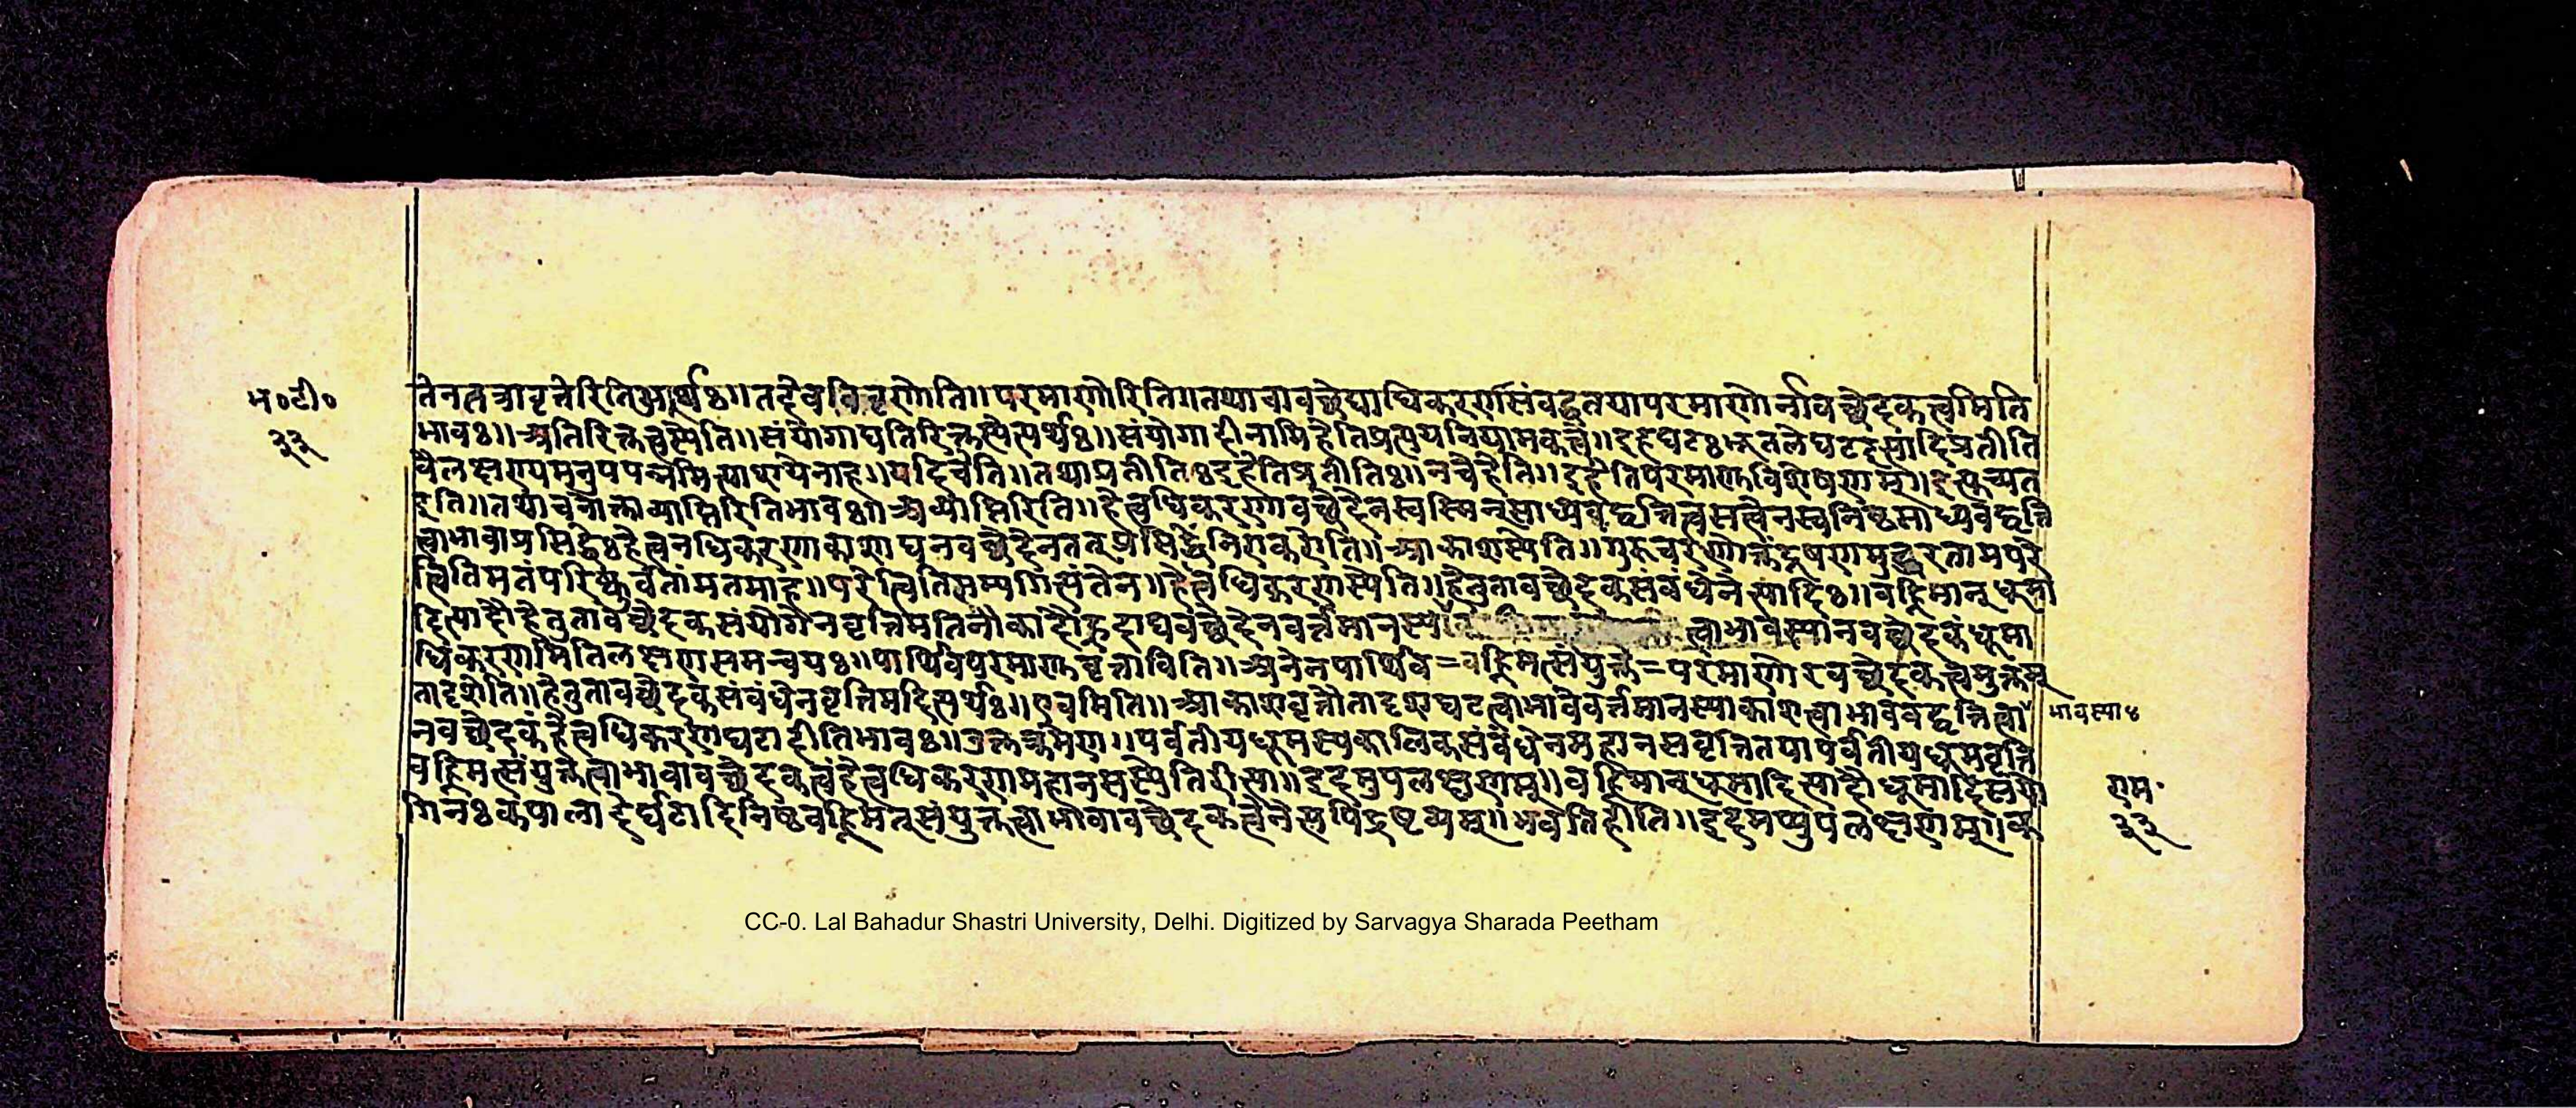 म॰टी॰
३३
तेन तत्रावृत्तेरिति भावार्थः॥तदेव विवृणोति॥परमाणोरिति॥तथाचावच्छेद्याधिकरणासंबद्धतयापरमाणोर्नावच्छेदकत्वमिति
भावः॥अतिरिक्तत्वस्येति॥संयोगाद्यतिरिक्तस्येत्यर्थः॥संयोगादीनामिहेतिप्रत्ययनियामकत्वे॥इहघटःभूतलेघटइत्यादिप्रतीति
वैलक्षण्यमनुपपन्नमित्याशयेनाह॥यदिचेति॥तथाप्रतीतिःइहेतिप्रतीतिः॥नचेहेति॥इहेतिपरमाणुविशेषणम्॥इत्युच्यत
इति॥तथाचनोक्ताव्याप्तिरितिभावः॥अव्याप्तिरिति॥हेत्वधिकरणावच्छेदेनस्वस्मिन्साध्यवद्वृत्तित्वसत्वेनस्वनिष्ठसाध्यवद्वृत्ति
त्वाभावाप्रसिद्धिःहेत्वनधिकरणाकाशाद्यनवच्छेदेनतत्प्रसिद्धेर्निराकरोति॥आकाशस्येति॥गुरुचरणोक्तंदूषणमुद्धरतामपरे
त्वितिमतंपरिष्कुर्वतांमतमाह॥परेत्वितिसम्यगित्यंतेन॥हेत्वधिकरणस्येति॥हेतुतावच्छेदकसंबंधेनेत्यादिः॥वह्निमान्धूमा
दित्यादौहेतुतावच्छेदकसंयोगेनवृत्तिमतिनौकादौह्रदाद्यवच्छेदेनवर्त्तमानस्य त्वाभावस्यानवच्छेदकंधूमा
धिकरणमितिलक्षणसमन्वयः॥पार्थिवपरमाणुवृत्ताविति॥अनेनपार्थिवे=वह्निमत्संयुक्ते=परमाणोरवच्छेदकत्वमुक्तम्
तादृशेति॥हेतुतावच्छेदकसंबंधेनवृत्तिमदित्यर्थः॥एवमिति॥आकाशवृत्तौतादृशघटत्वाभावेवर्त्तमानस्याकाशत्वाभाववद्वृत्तित्वा
भावस्याः
नवच्छेदकंहेत्वधिकरणंघटादीतिभावः॥उक्तक्रमेण॥पर्वतीयधूमस्यकालिकसंबंधेनमहानसवृत्तितयापर्वतीयधूमवृत्ति
वह्निमत्संयुक्तत्वाभावावच्छेदकत्वंहेत्वधिकरणमहानसस्येतिरीत्या॥इदमुपलक्षणम्॥वह्निमान्धूमादित्यादौधूमादिसंयो
गिनःकपालादेर्घटादिनिष्ठंवह्निमत्संयुक्तत्वाभावावच्छेदकत्वेनेत्यपिद्रष्टव्यम्॥भवतिहीति॥इदमप्युपलक्षणम्॥क
राम॰
३३
CC-0. Lal Bahadur Shastri University, Delhi. Digitized by Sarvagya Sharada Peetham